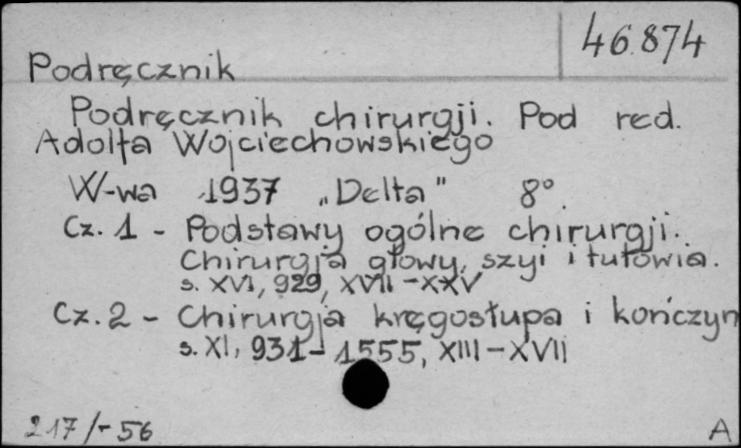 46.874
Podręcznik
Podręcznik chirurgji. Pod red.
Adolfa Wojciechowskiego
W-wa 1937 „Delta" 8°.
Cz. 1 - Podstawy ogólne chirurgji.
Chirurgja głowy, szyi i tułowia.
s. XVI, 929, XVII-XXV
Cz. 2 - Chirurgja kręgosłupa i kończyn
s. XI, 931-1555, XIII-XVII
217/-56
A